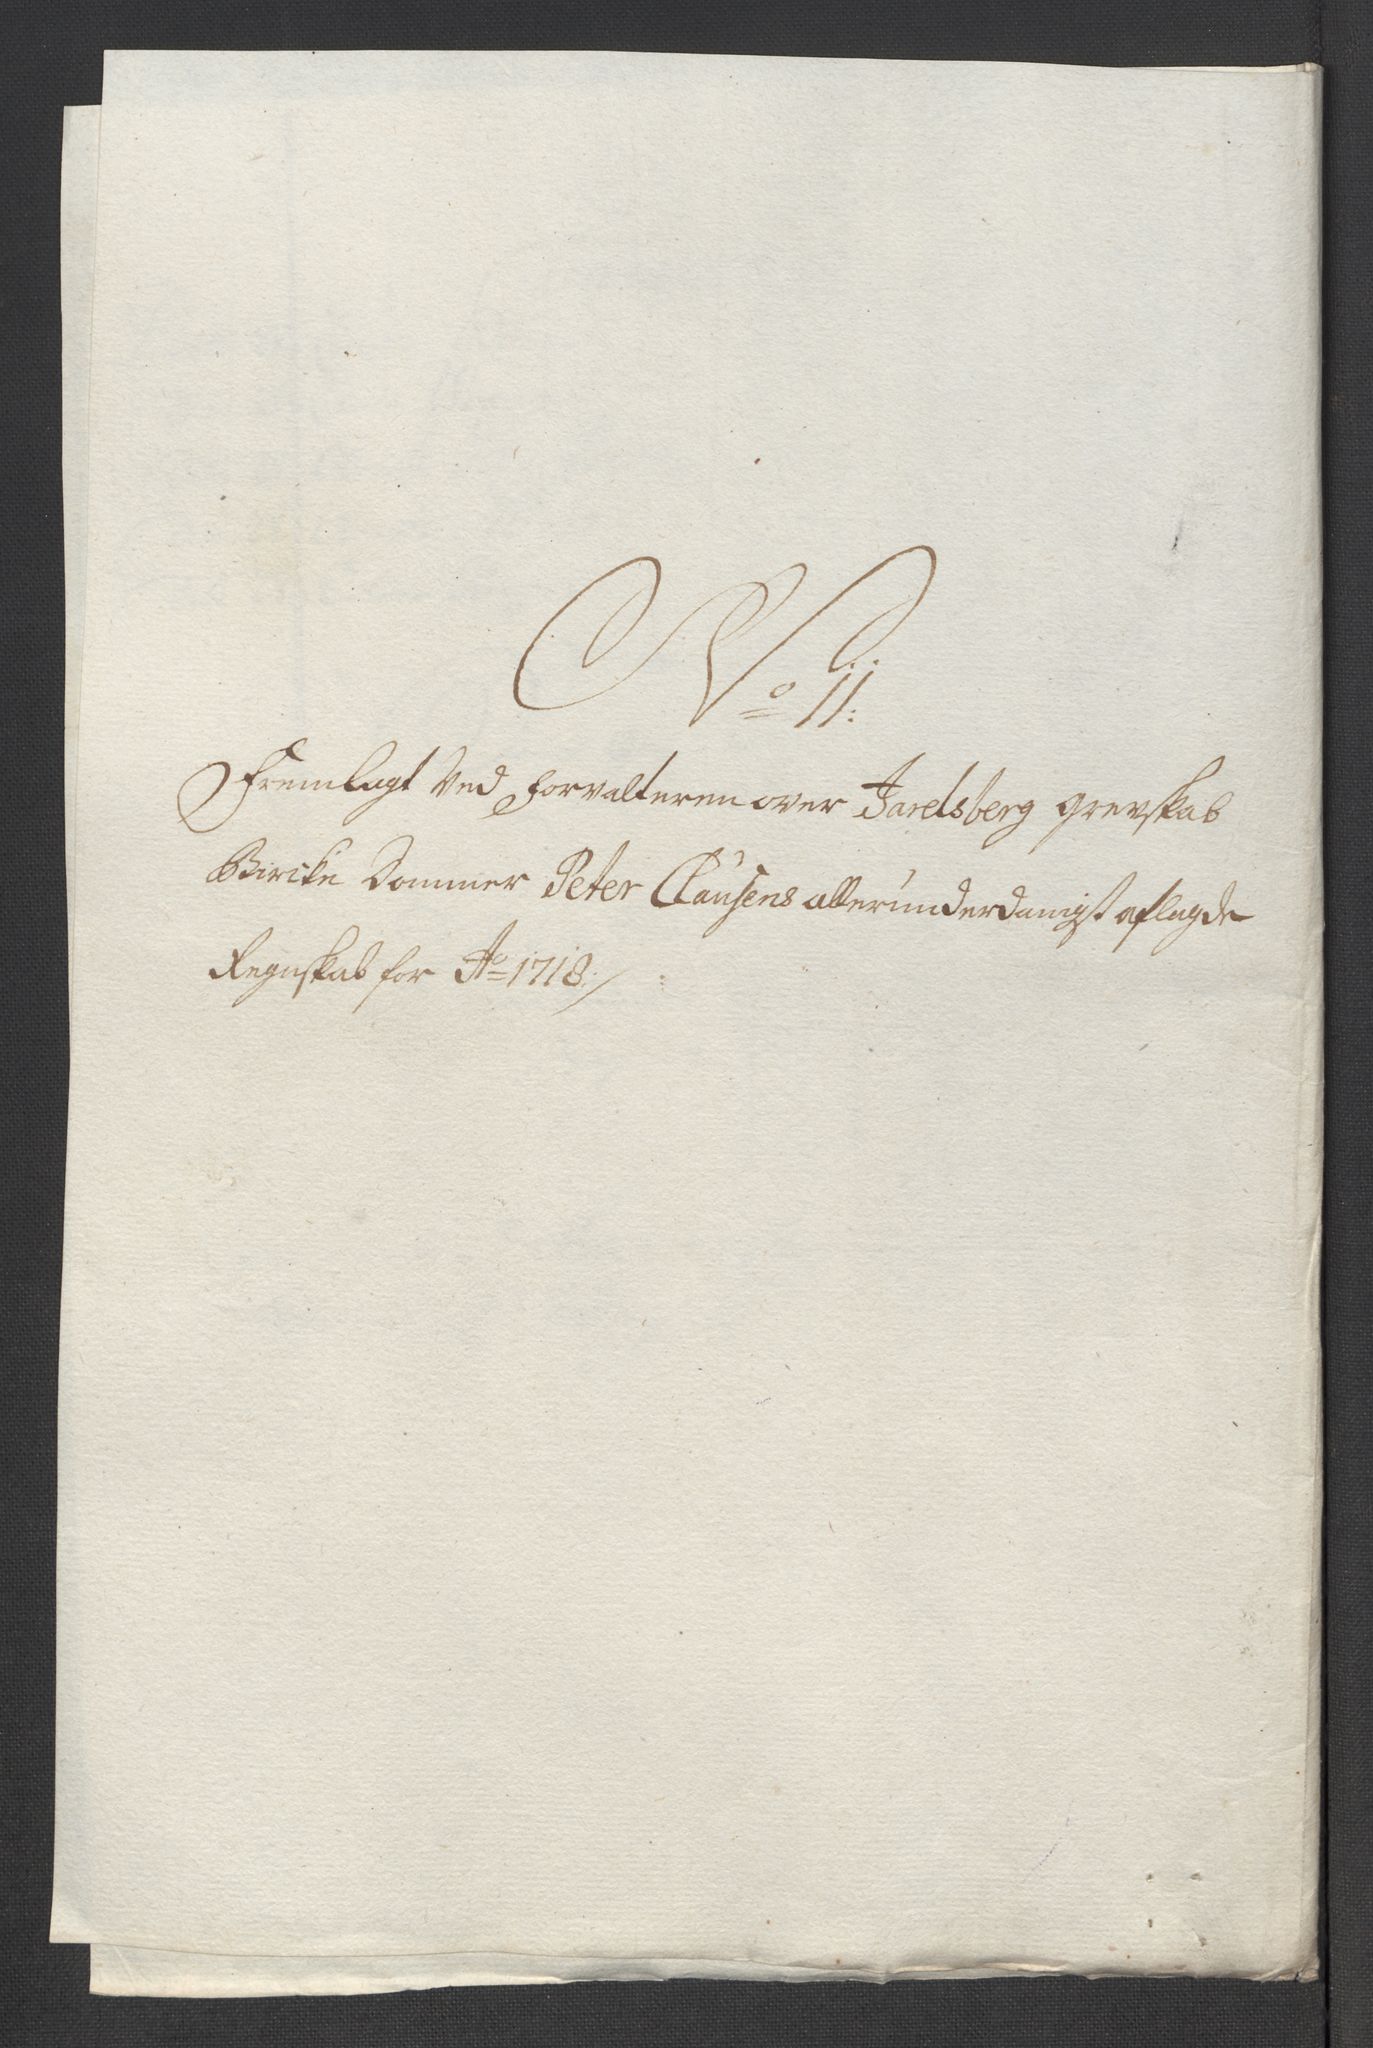 No 11:
Fremlagt Ved Forvalteren over Jarelsberg grevskab
Bircke Dommer Peter Clausens allerunderdanigst aflagde
Regnskab for Ao 1718 ./